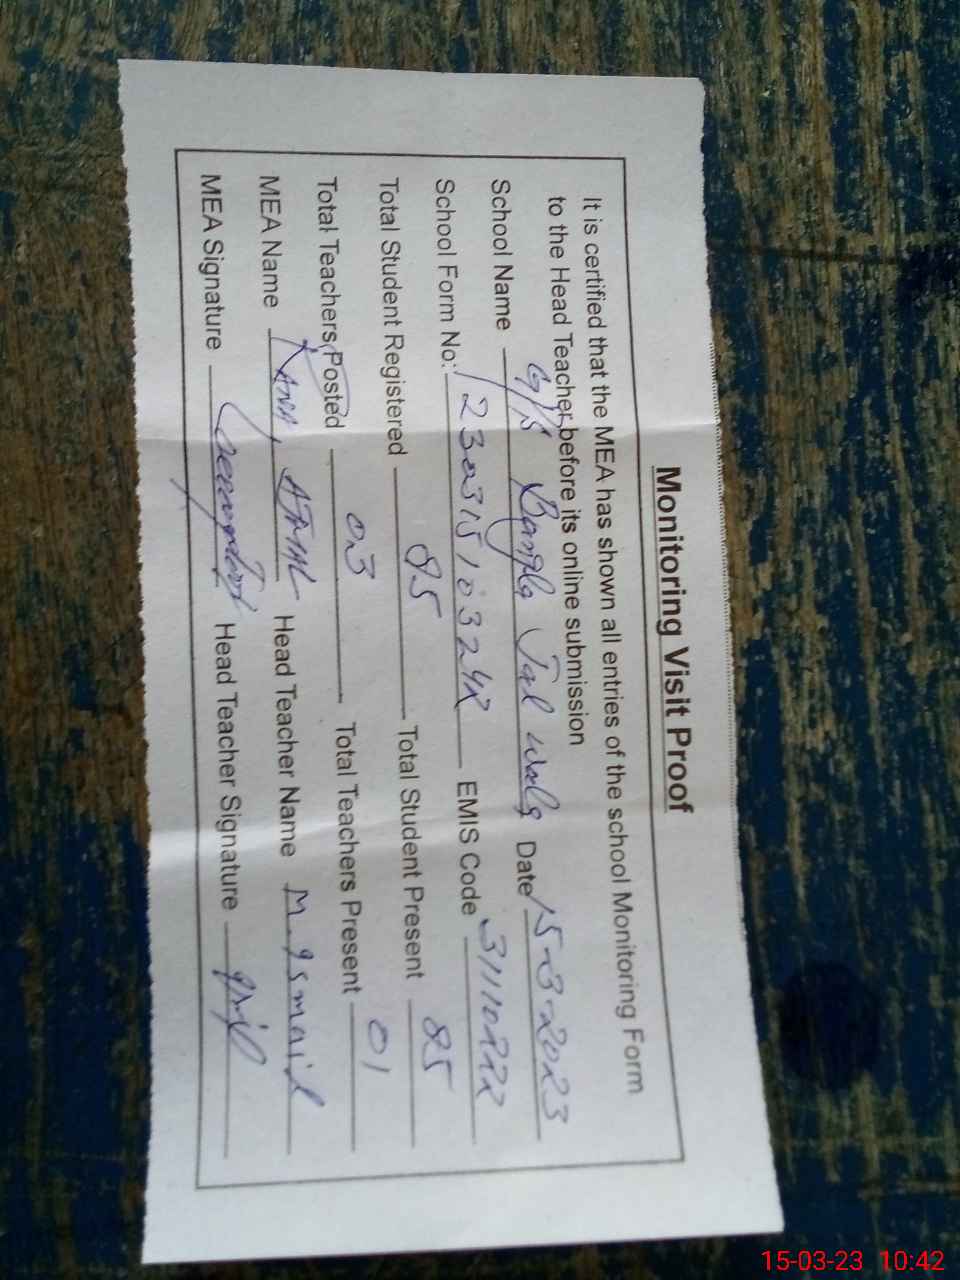 Monitoring Visit Proof
It is certified that the MEA has shown all entries of the school Monitoring Form
to the Head Teacher before its online submission
School Name G/S Bangla Jal wala Date 15-3-2023
School Form No: 1230315103242 EMIS Code 31110222
Total Student Registered 85 Total Student Present 85
Total Teachers Posted 03 Total Teachers Present 01
MEA Name Head Teacher Name M. Ismail
MEA Signature Head Teacher Signature
15-03-23 10:42